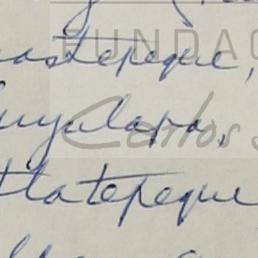 FUNDAC
astepeque,
uyulapa,
Carlos
tlatepeque